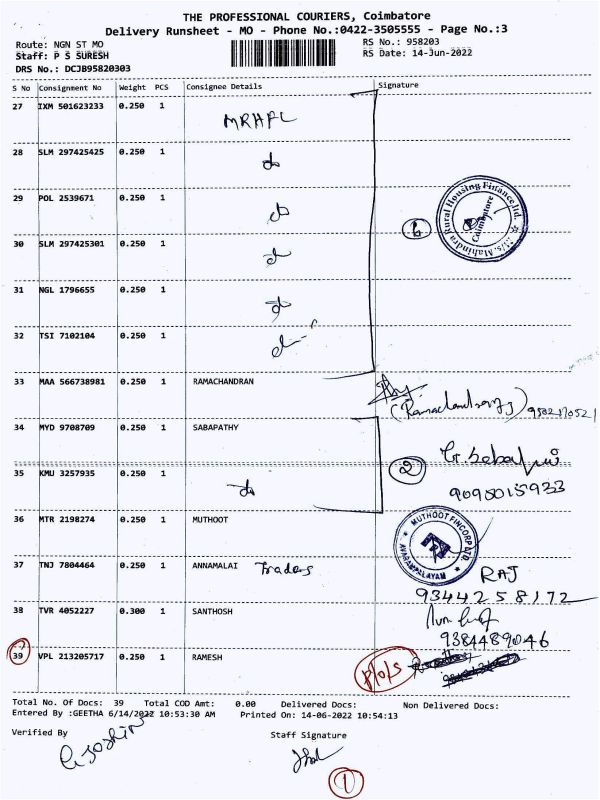 THE PROFESSIONAL COURIERS, Coimbatore
Delivery Runsheet - MO - Phone No.:0422-3505555 - Page No.:3
Route: NGN ST MO
RS No.: 958203
Staff: P S SURESH
RS Date: 14-Jun-2022
DRS No.: DCJB95820303
S No Consignment No Weight PCS Consignee Details Signature
27 IXM 501623233 0.250 1 MRHFL
28 SLM 297425425 0.250 1 do
29 POL 2539671 0.250 1 do
30 SLM 297425301 0.250 1 do
6
M/s. Mahindra Rural Housing Finance Ltd. Coimbatore
31 NGL 1796655 0.250 1 do
32 TSI 7102104 0.250 1 do
33 MAA 566738981 0.250 1 RAMACHANDRAN
34 MYD 9708709 0.250 1 SABAPATHY
2
35 KMU 3257935 0.250 1 do
9095015933
36 MTR 2198274 0.250 1 MUTHOOT
MUTHOOT FINCORP LTD. AVARAMPALAYAM
37 TNJ 7804464 0.250 1 ANNAMALAI Traders RAJ
9344258172
38 TVR 4052227 0.300 1 SANTHOSH
9384489046
39 VPL 213205717 0.250 1 RAMESH
Total No. Of Docs: 39 Total COD Amt: 0.00 Delivered Docs: Non Delivered Docs:
Entered By :GEETHA 6/14/2022 10:53:30 AM Printed On: 14-06-2022 10:54:13
Verified By Staff Signature
1